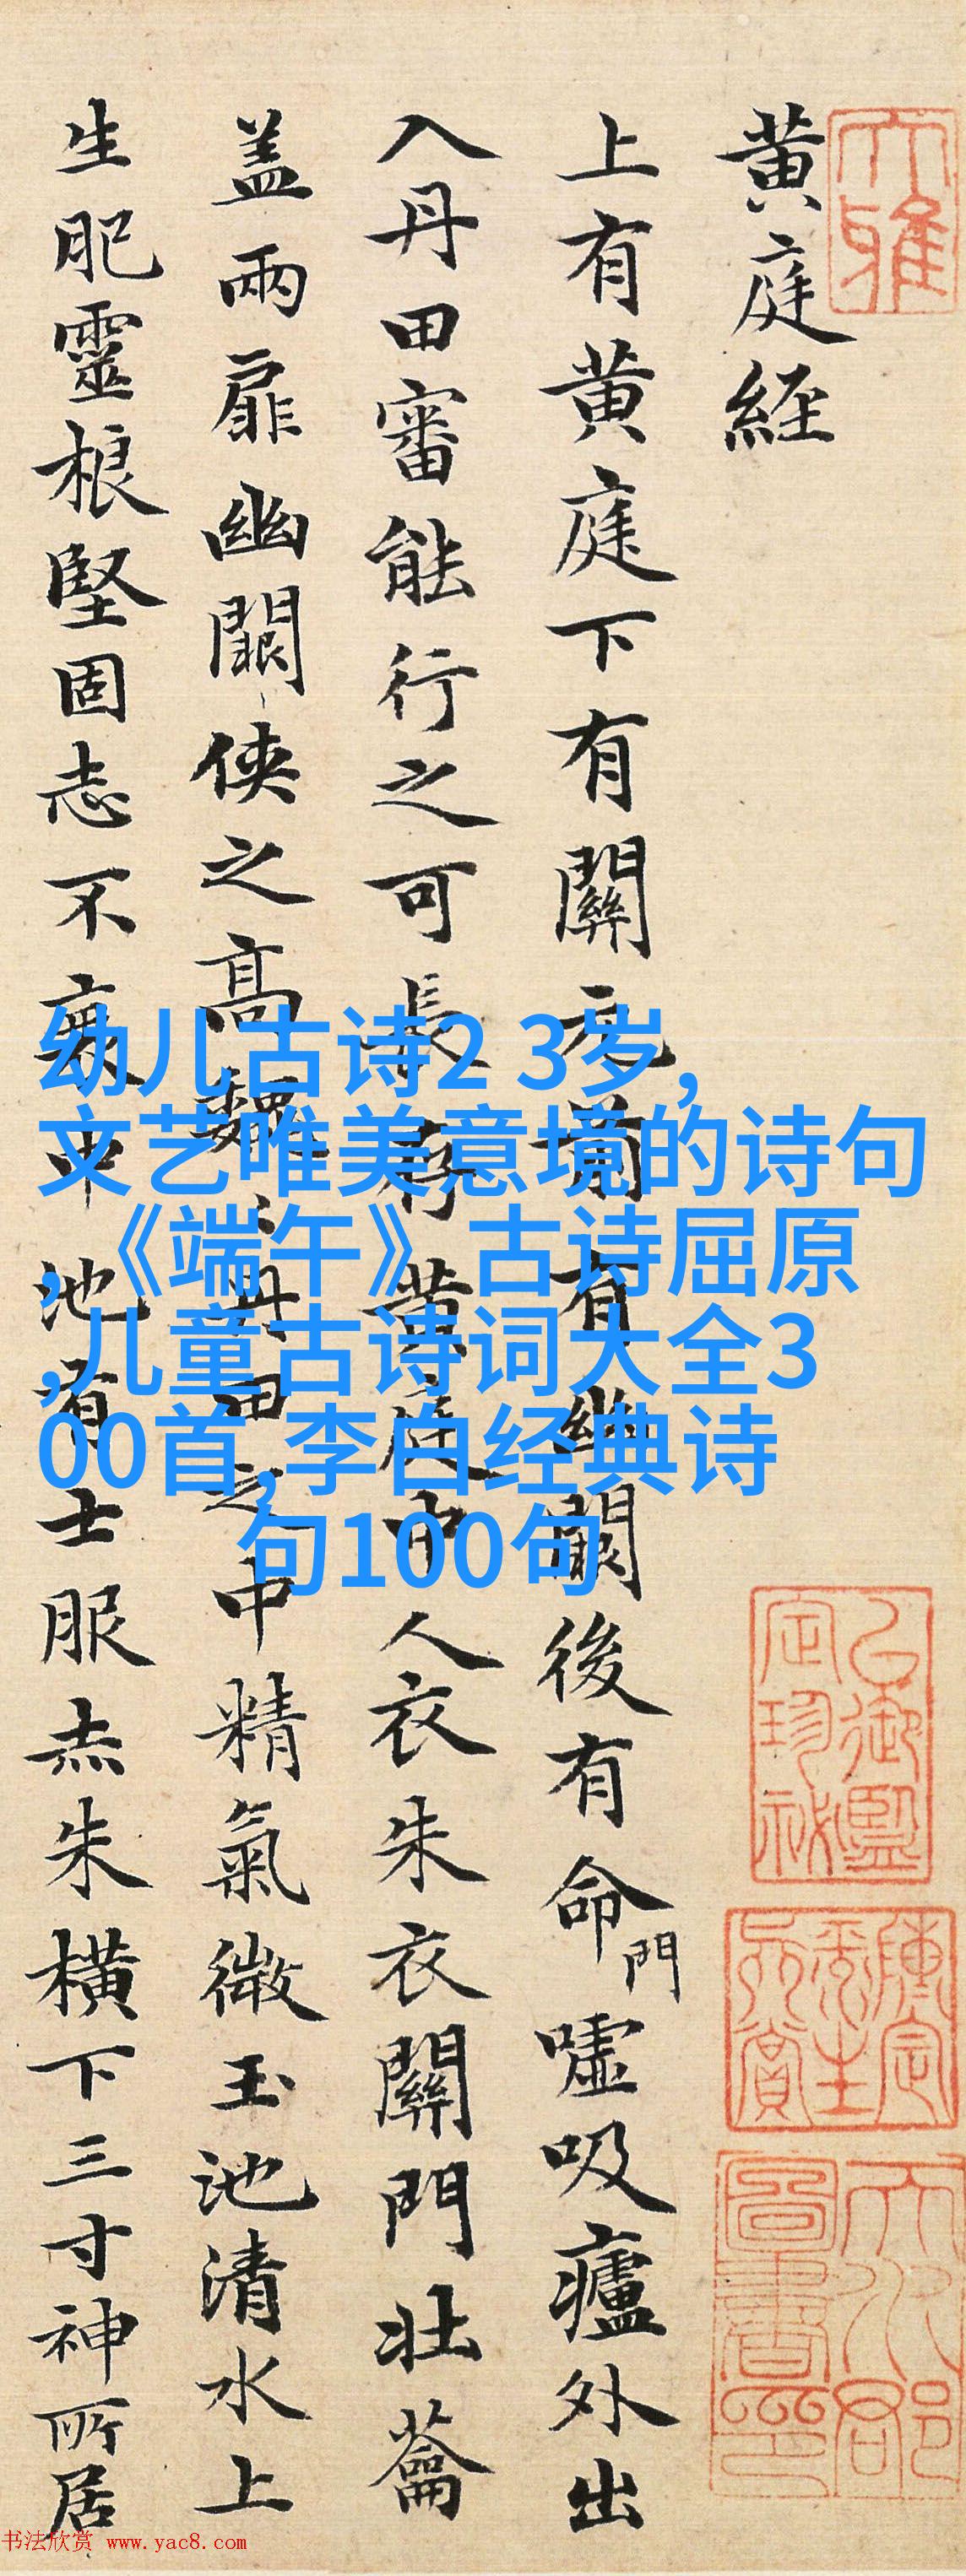 黄庭經
上有黄庭下有關元前有幽闕後有命門嘘吸廬外出
入丹田審能行之可長存黄庭中人衣朱衣關門壮蘥
盖兩扉幽闕侠之高魏丹田之中精氣微玉池清水上
生肥靈根堅固志不衰中池有士服赤朱横下三寸神所居
大雅
乙御
定珍
幼儿古诗2 3岁,
文艺唯美意境的诗句
,《端午》古诗屈原
,儿童古诗词大全3
00首,李白经典诗
句100句
书法欣赏 www.yac8.com